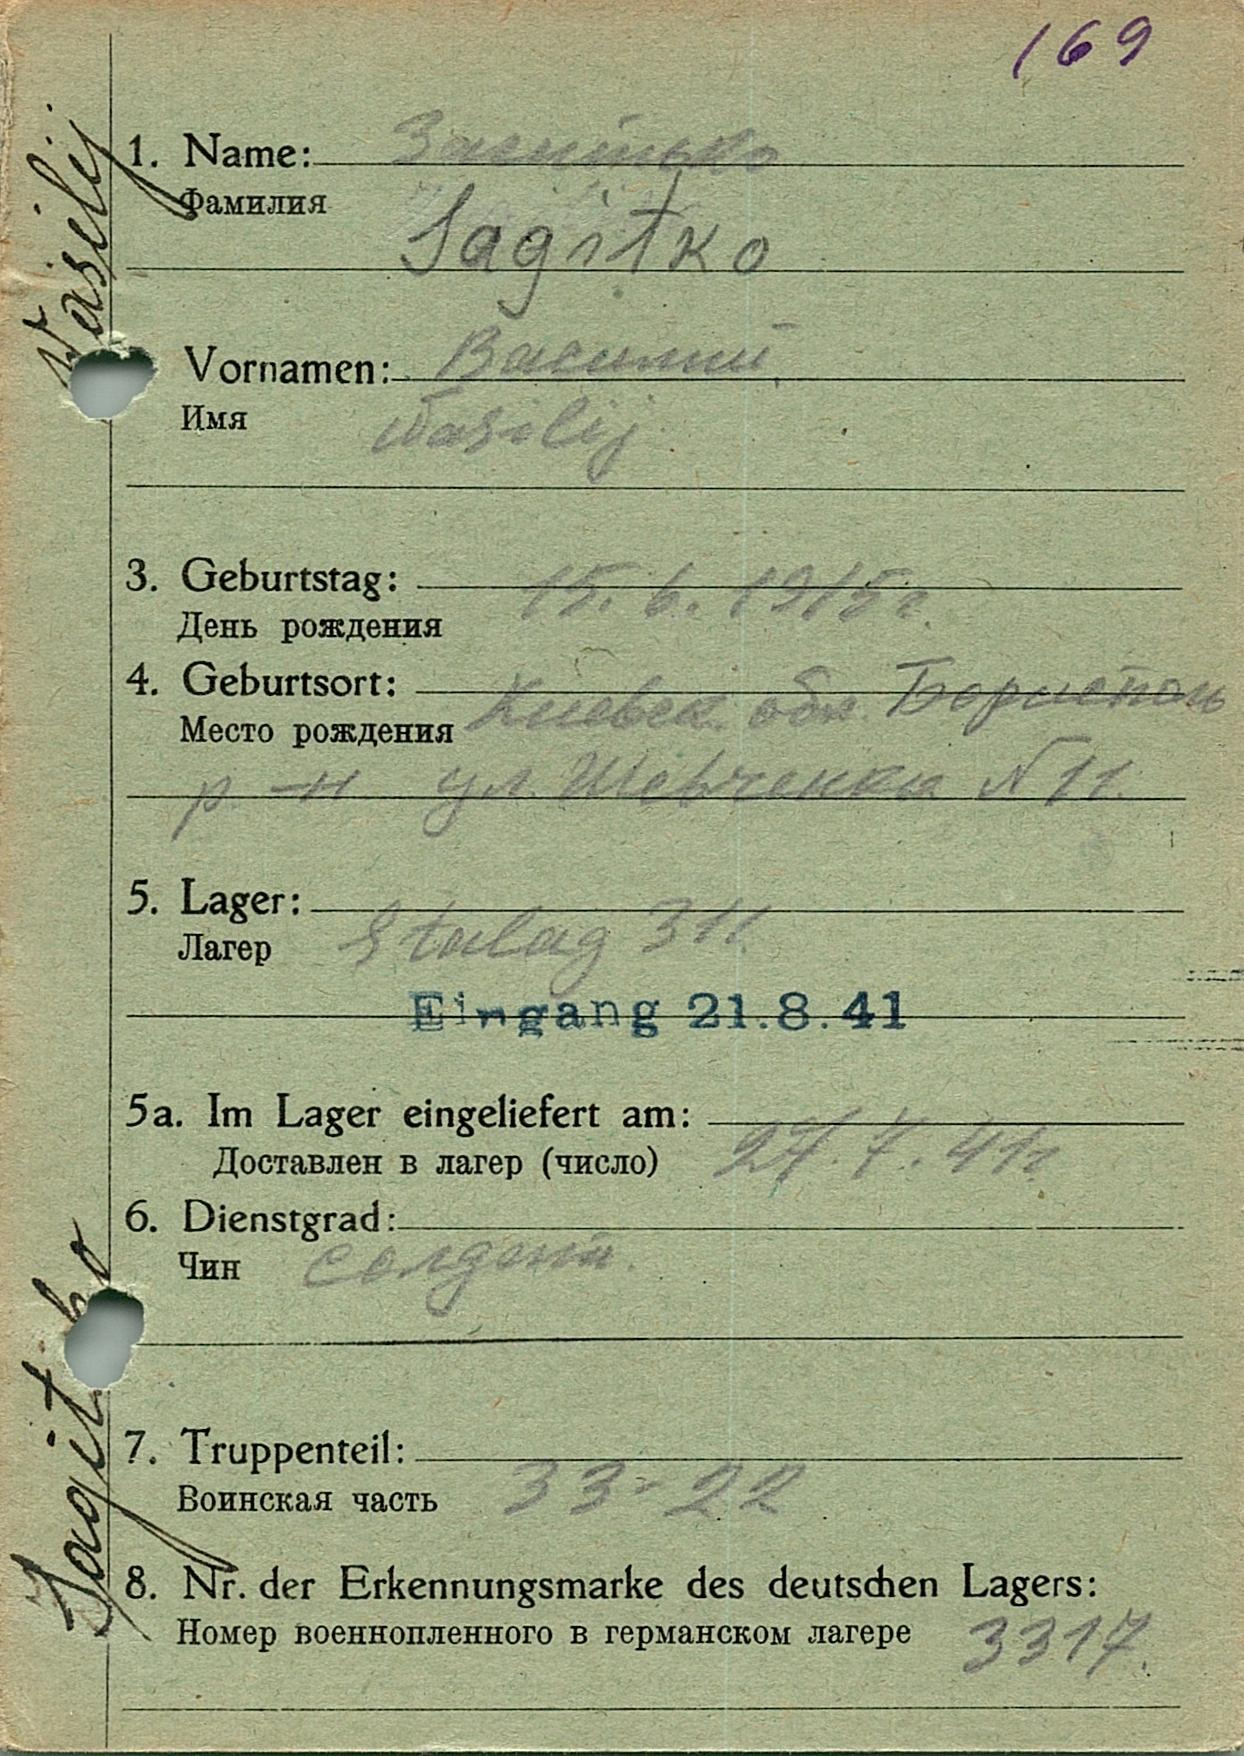 169
1. Name: Загитько
Фамилия
Sagitko
Vornamen: Василий
Имя
Wasilij
3. Geburtstag: 15.6.1915 г.
День рождения
4. Geburtsort: Киевск. обл. Бориспол
Место рождения
р-н ул. Шевченка N 11.
5. Lager:
Лагер Stalag 311
Eingang 21.8.41
5a. Im Lager eingeliefert am:
Доставлен в лагер (число) 27.7.41 г.
6. Dienstgrad:
Чин солдат
7. Truppenteil:
Воинская часть 33-22
8. Nr. der Erkennungsmarke des deutschen Lagers:
Номер военнопленного в германском лагере 3317.
Sagitko Wasilij